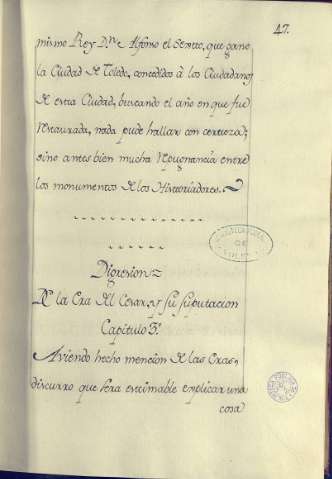 47.
mismo Rey D.ⁿ Alfonso el Sexto, que ganò
la Ciudad de Toledo, concedidos à los Ciudadanos
de esta Ciudad, buscando el año en que fue
restaurada, nada pude hallar con certeza;
sino antes bien mucha repugnancia entre
los monumentos de los Historiadores.
Digresion
De la Era del Cesar, y su suputacion
Capitulo 3.º
Aviendo hecho mencion de las Eras,
discurro que sera estimable explicar una
cosa